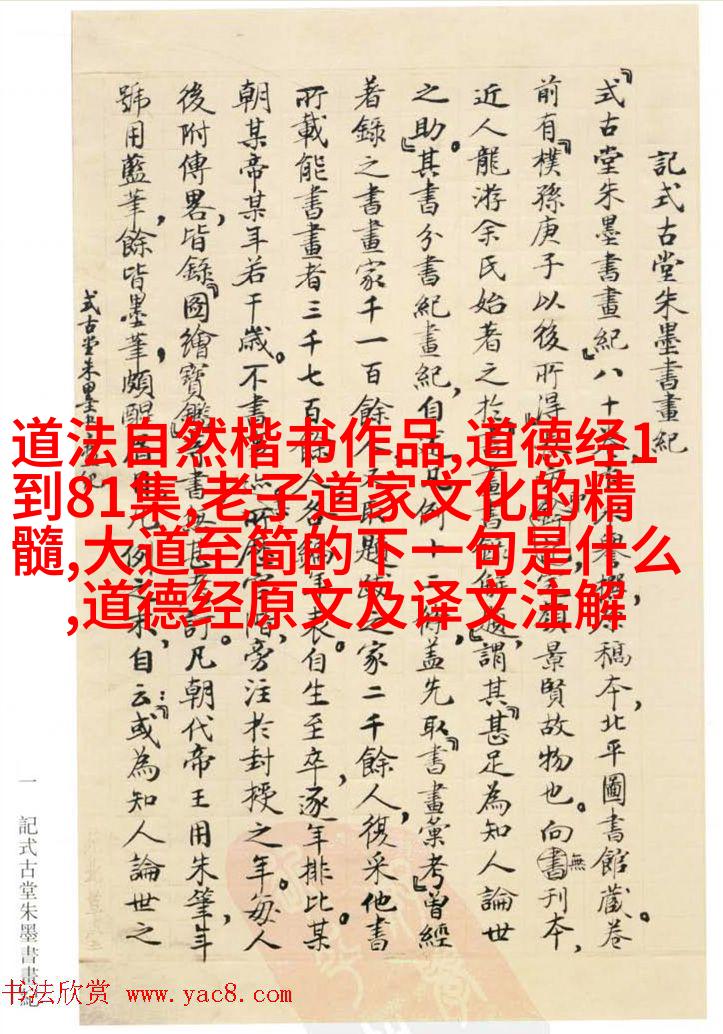 記式古堂朱墨書畫紀
『式古堂朱墨書畫紀』八十稿本，北平圖書館藏。卷
前有樸孫庚子以後所得景賢故物也。向書無刊本，
近人龍游余氏始著之於謂其『甚足為知人論世
之助。』其書分書紀畫紀，自例十二蓋先取『書畫彙考』曾經
著錄之書畫家千一百餘之家二千餘人，復采他書
所載能書畫者三千七百餘人各表。自生至卒，逐年排比某
朝某帝某年若干歲。不書旁注於封授之年。每人
後附傳畧，皆錄『圖繪寶鑑凡朝代帝王用朱筆，年
號用藍筆，餘皆墨筆，頗醒例之末，自云：『或為知人論世之
式古堂朱墨
道法自然楷书作品,道德经1
到81集,老子道家文化的精
髓,大道至简的下一句是什么
,道德经原文及译文注解
一
記式古堂朱墨書畫紀
书法欣赏 www.yac8.com